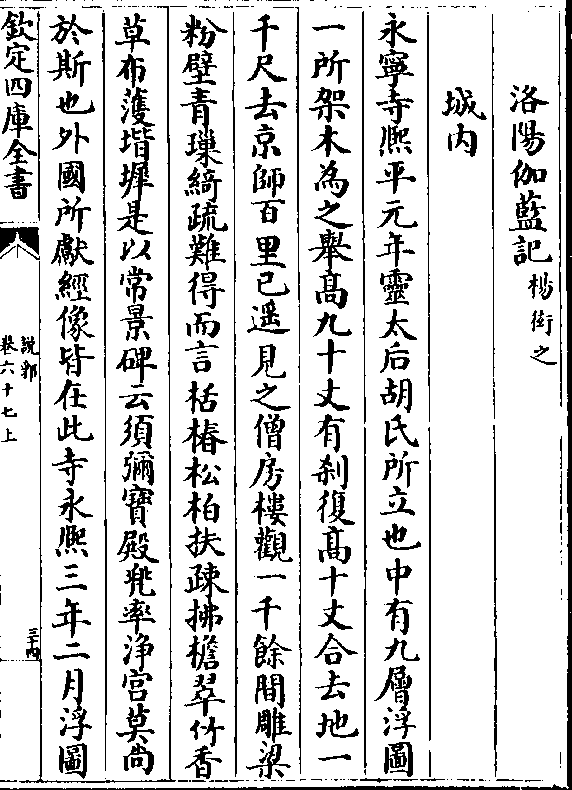 洛陽伽藍記楊衒之
城内
永寧寺熙平元年靈太后胡氏所立也中有九層浮圖
一所架木為之舉髙九十丈有刹復髙十丈合去地一
千尺去京師百里已遥見之僧房樓觀一千餘間雕梁
粉壁青璅綺疏難得而言栝椿松柏扶疎拂檐翠竹香
草布䕶堦墀是以常景碑云須彌寶殿兠率浄宫莫尚
於斯也外國所獻經像皆在此寺永熙三年二月浮圖
欽定四庫全書
説郛
卷六十七上
三十四